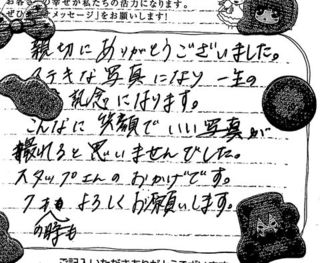 の幸せが私たちの活力になります。
メッセージ」をお願いします!
親切にありがとうございました。
ステキな写真になり 一生の
記念になります。
こんなに笑顔でいい写真が
撮れると思いませんでした。
スタッフさんのおかげです。
7才 よろしくお願いします。
の時も
ご記入いただきありがとうございま